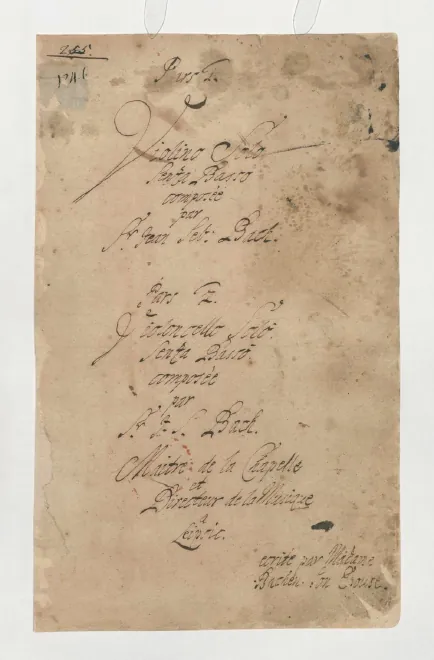 235.
Pars 1.
Violino Solo
Senza Basso
composée
par
Sr. Jean Seb: Bach.
Pars 2.
Violoncello Solo.
Senza Basso.
composée
par
Sr. J. S. Bach.
Maitre de la Chapelle
et
Directeur de la Musique
a
Leipsic.
ecrite par Madame
Bachen. Son Epouse.